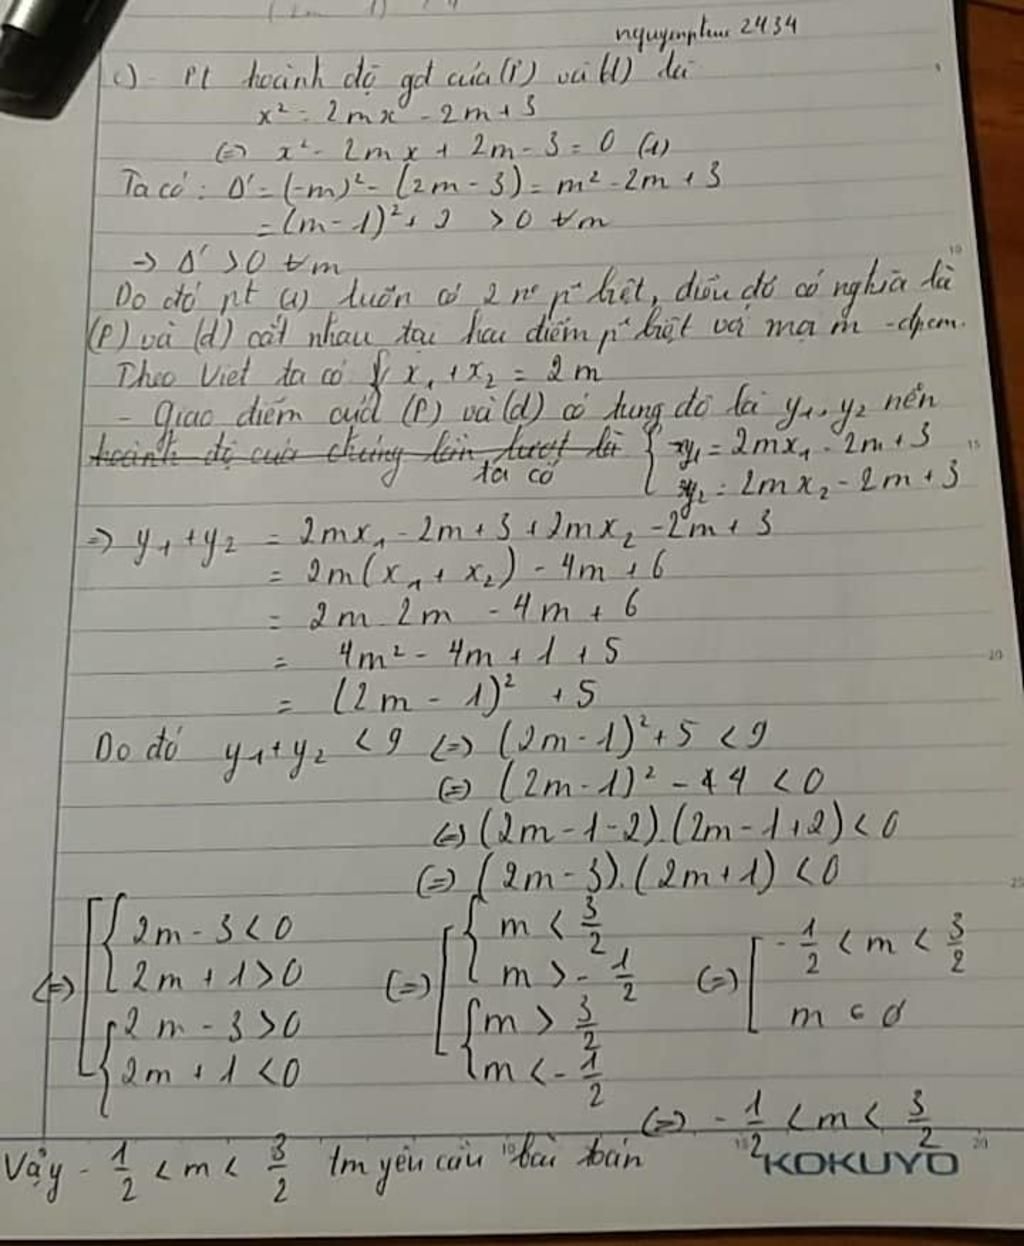 nguyenphuc 2434
c) - Pt hoành độ gđ của (P) và (d) là
x² = 2mx - 2m + 3
(=) x² - 2mx + 2m - 3 = 0 (1)
Ta có : Δ' = (-m)² - (2m - 3) = m² - 2m + 3
= (m - 1)² + 2 > 0 ∀m
→ Δ' > 0 ∀m
Do đó pt (1) luôn có 2 no p² biệt, điều đó có nghĩa là
(P) và (d) cắt nhau tại hai điểm p² biệt với mọi m - đpcm.
Theo Viet ta có { x₁ + x₂ = 2m
- Giao điểm của (P) và (d) có tung độ là y₁, y₂ nên
hoành độ của chúng lần lượt là { y₁ = 2mx₁ - 2m + 3
ta có y₂ = 2mx₂ - 2m + 3
=> y₁ + y₂ = 2mx₁ - 2m + 3 + 2mx₂ - 2m + 3
= 2m(x₁ + x₂) - 4m + 6
= 2m.2m - 4m + 6
= 4m² - 4m + 1 + 5
= (2m - 1)² + 5
Do đó y₁ + y₂ < 9 (=) (2m - 1)² + 5 < 9
(=) (2m - 1)² - 4 < 0
(=) (2m - 1 - 2).(2m - 1 + 2) < 0
(=) (2m - 3).(2m + 1) < 0
(=) [ { 2m - 3 < 0 (=) [ { m < 3/2 (=) [ - 1/2 < m < 3/2
2m + 1 > 0 m > - 1/2
{ 2m - 3 > 0 { m > 3/2 m ∈ ∅
2m + 1 < 0 m < - 1/2
(=) - 1/2 < m < 3/2
Vậy - 1/2 < m < 3/2 tm yêu cầu bài toán
KOKUYO